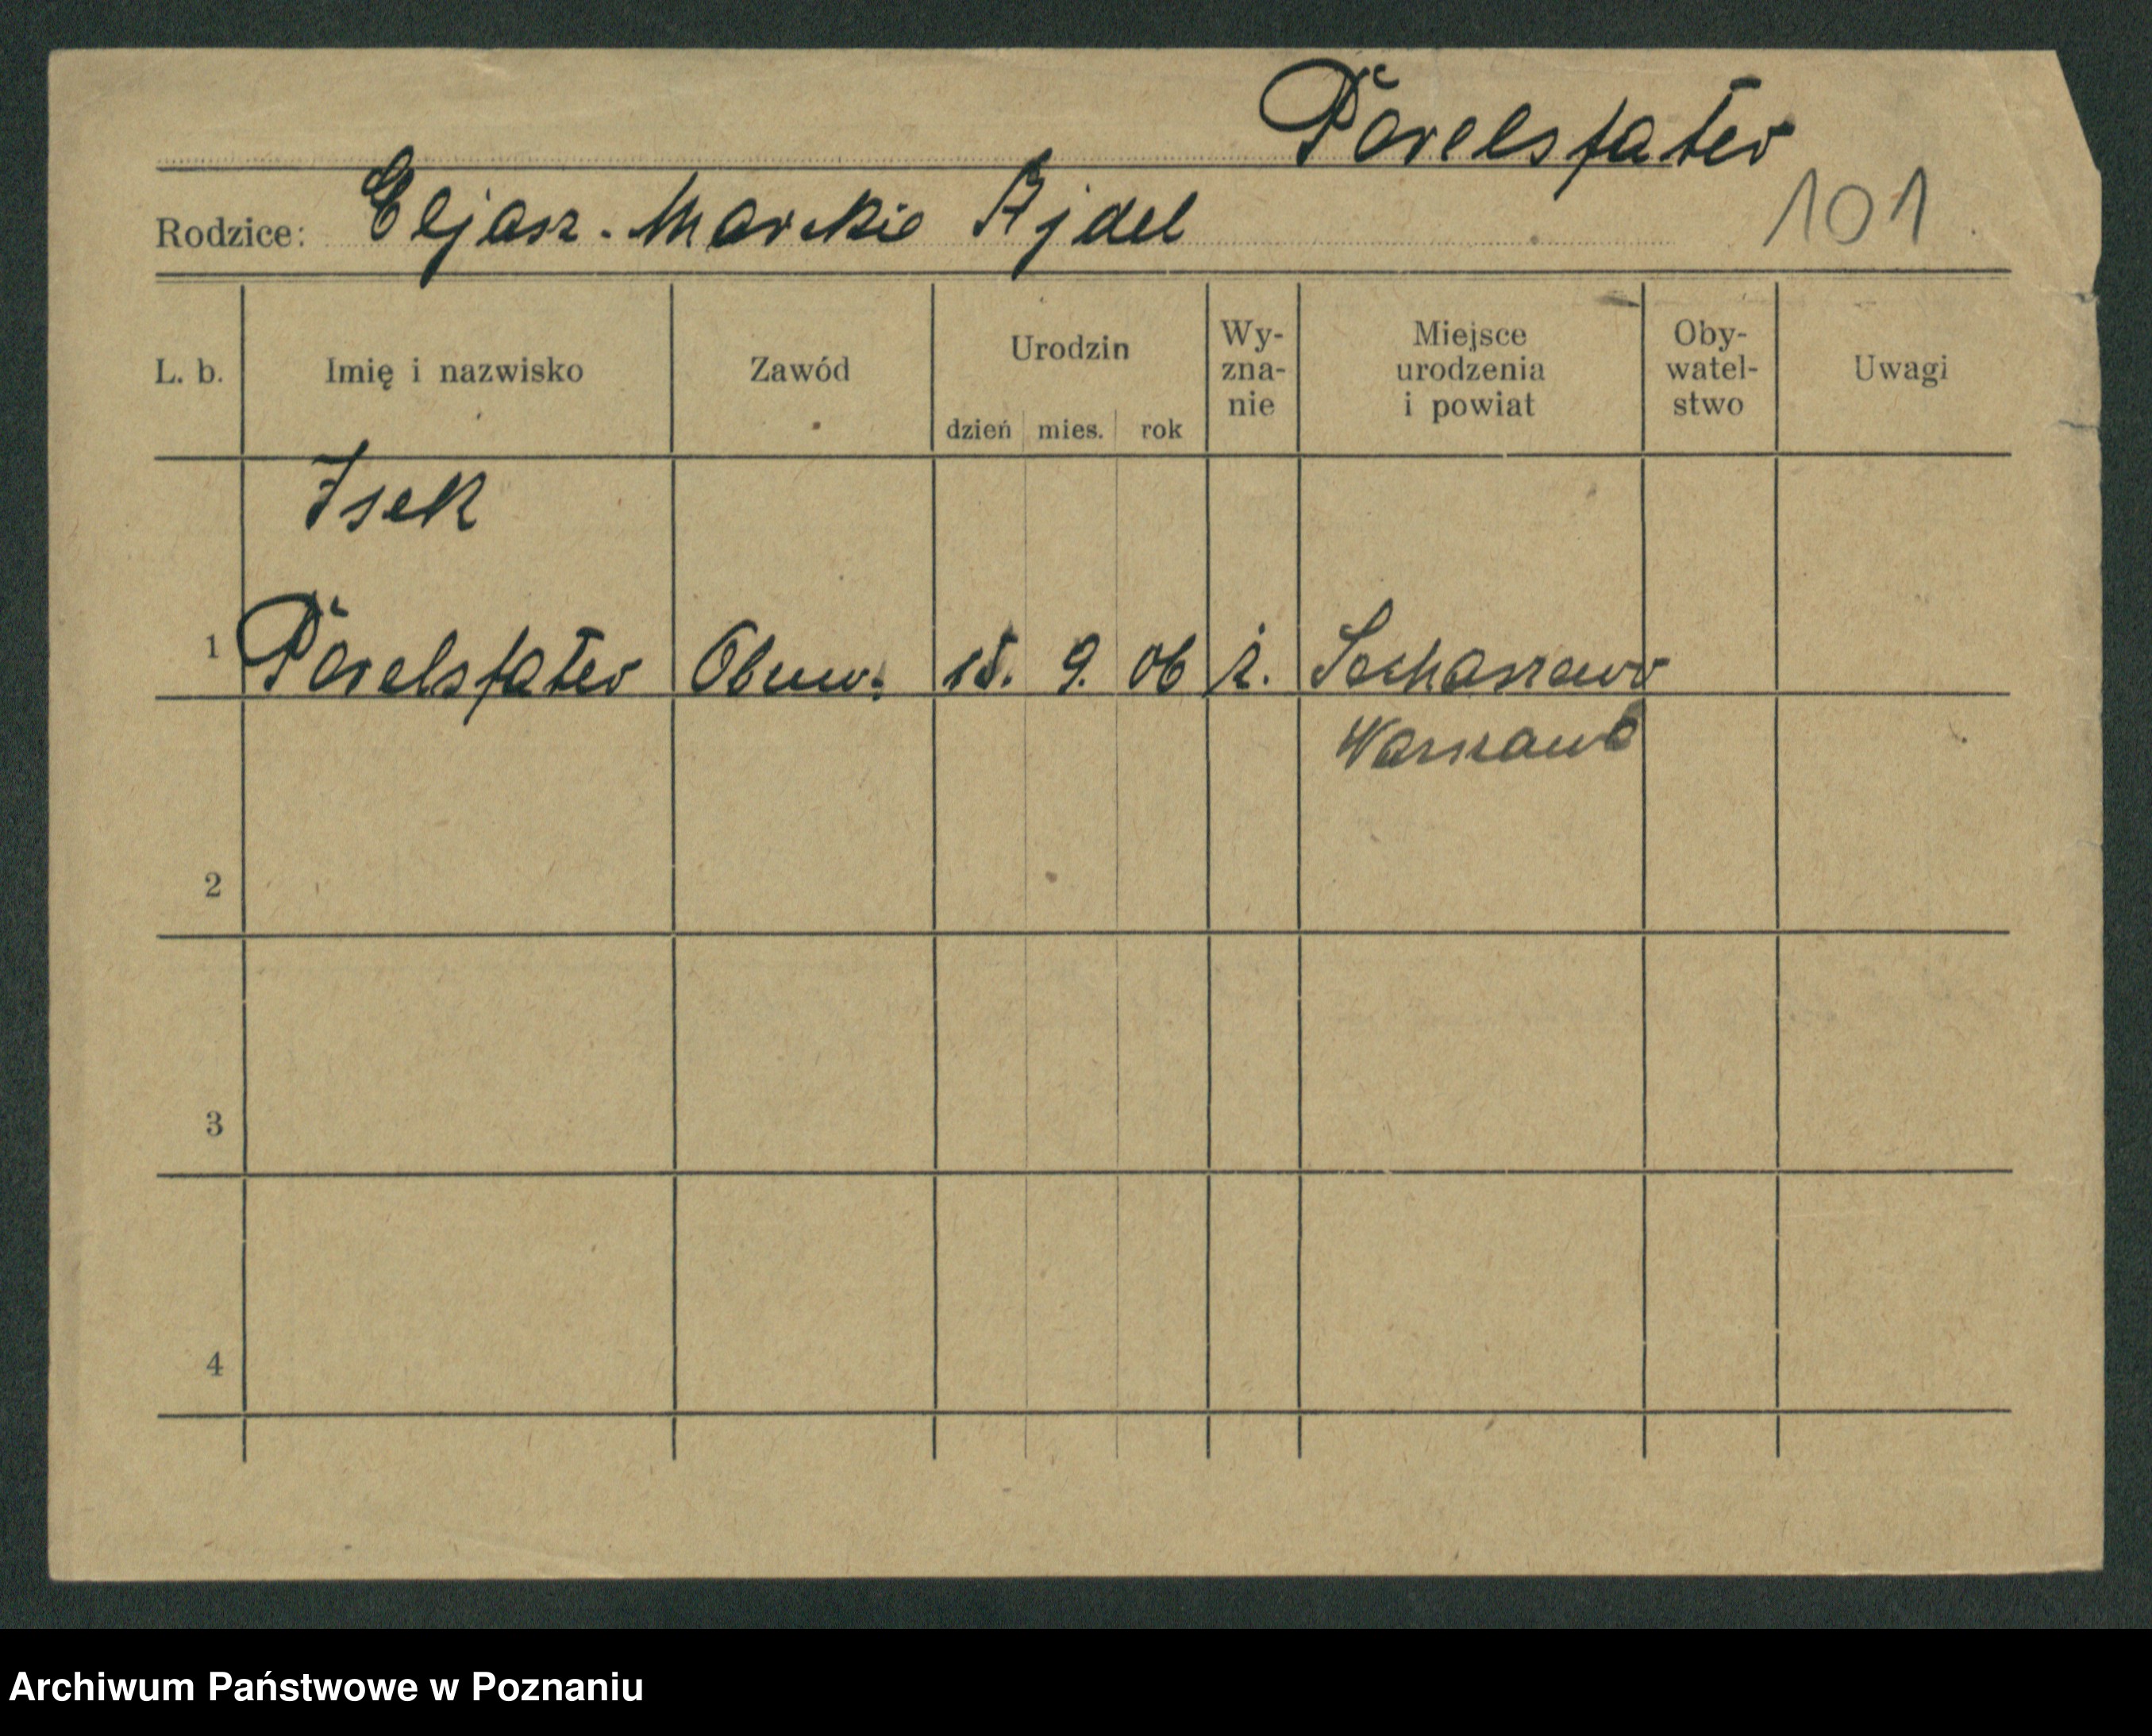 Parelsfater
Rodzice: Eljasz-Markie Ajdel
101
L. b. Imię i nazwisko Zawód Urodzin dzień mies. rok Wy-zna-nie Miejsce urodzenia i powiat Oby-watel-stwo Uwagi
Isek
1 Parelsfater 15. 9. 06 ż. Sochaszewo
Warszawa
2
3
4
Archiwum Państwowe w Poznaniu